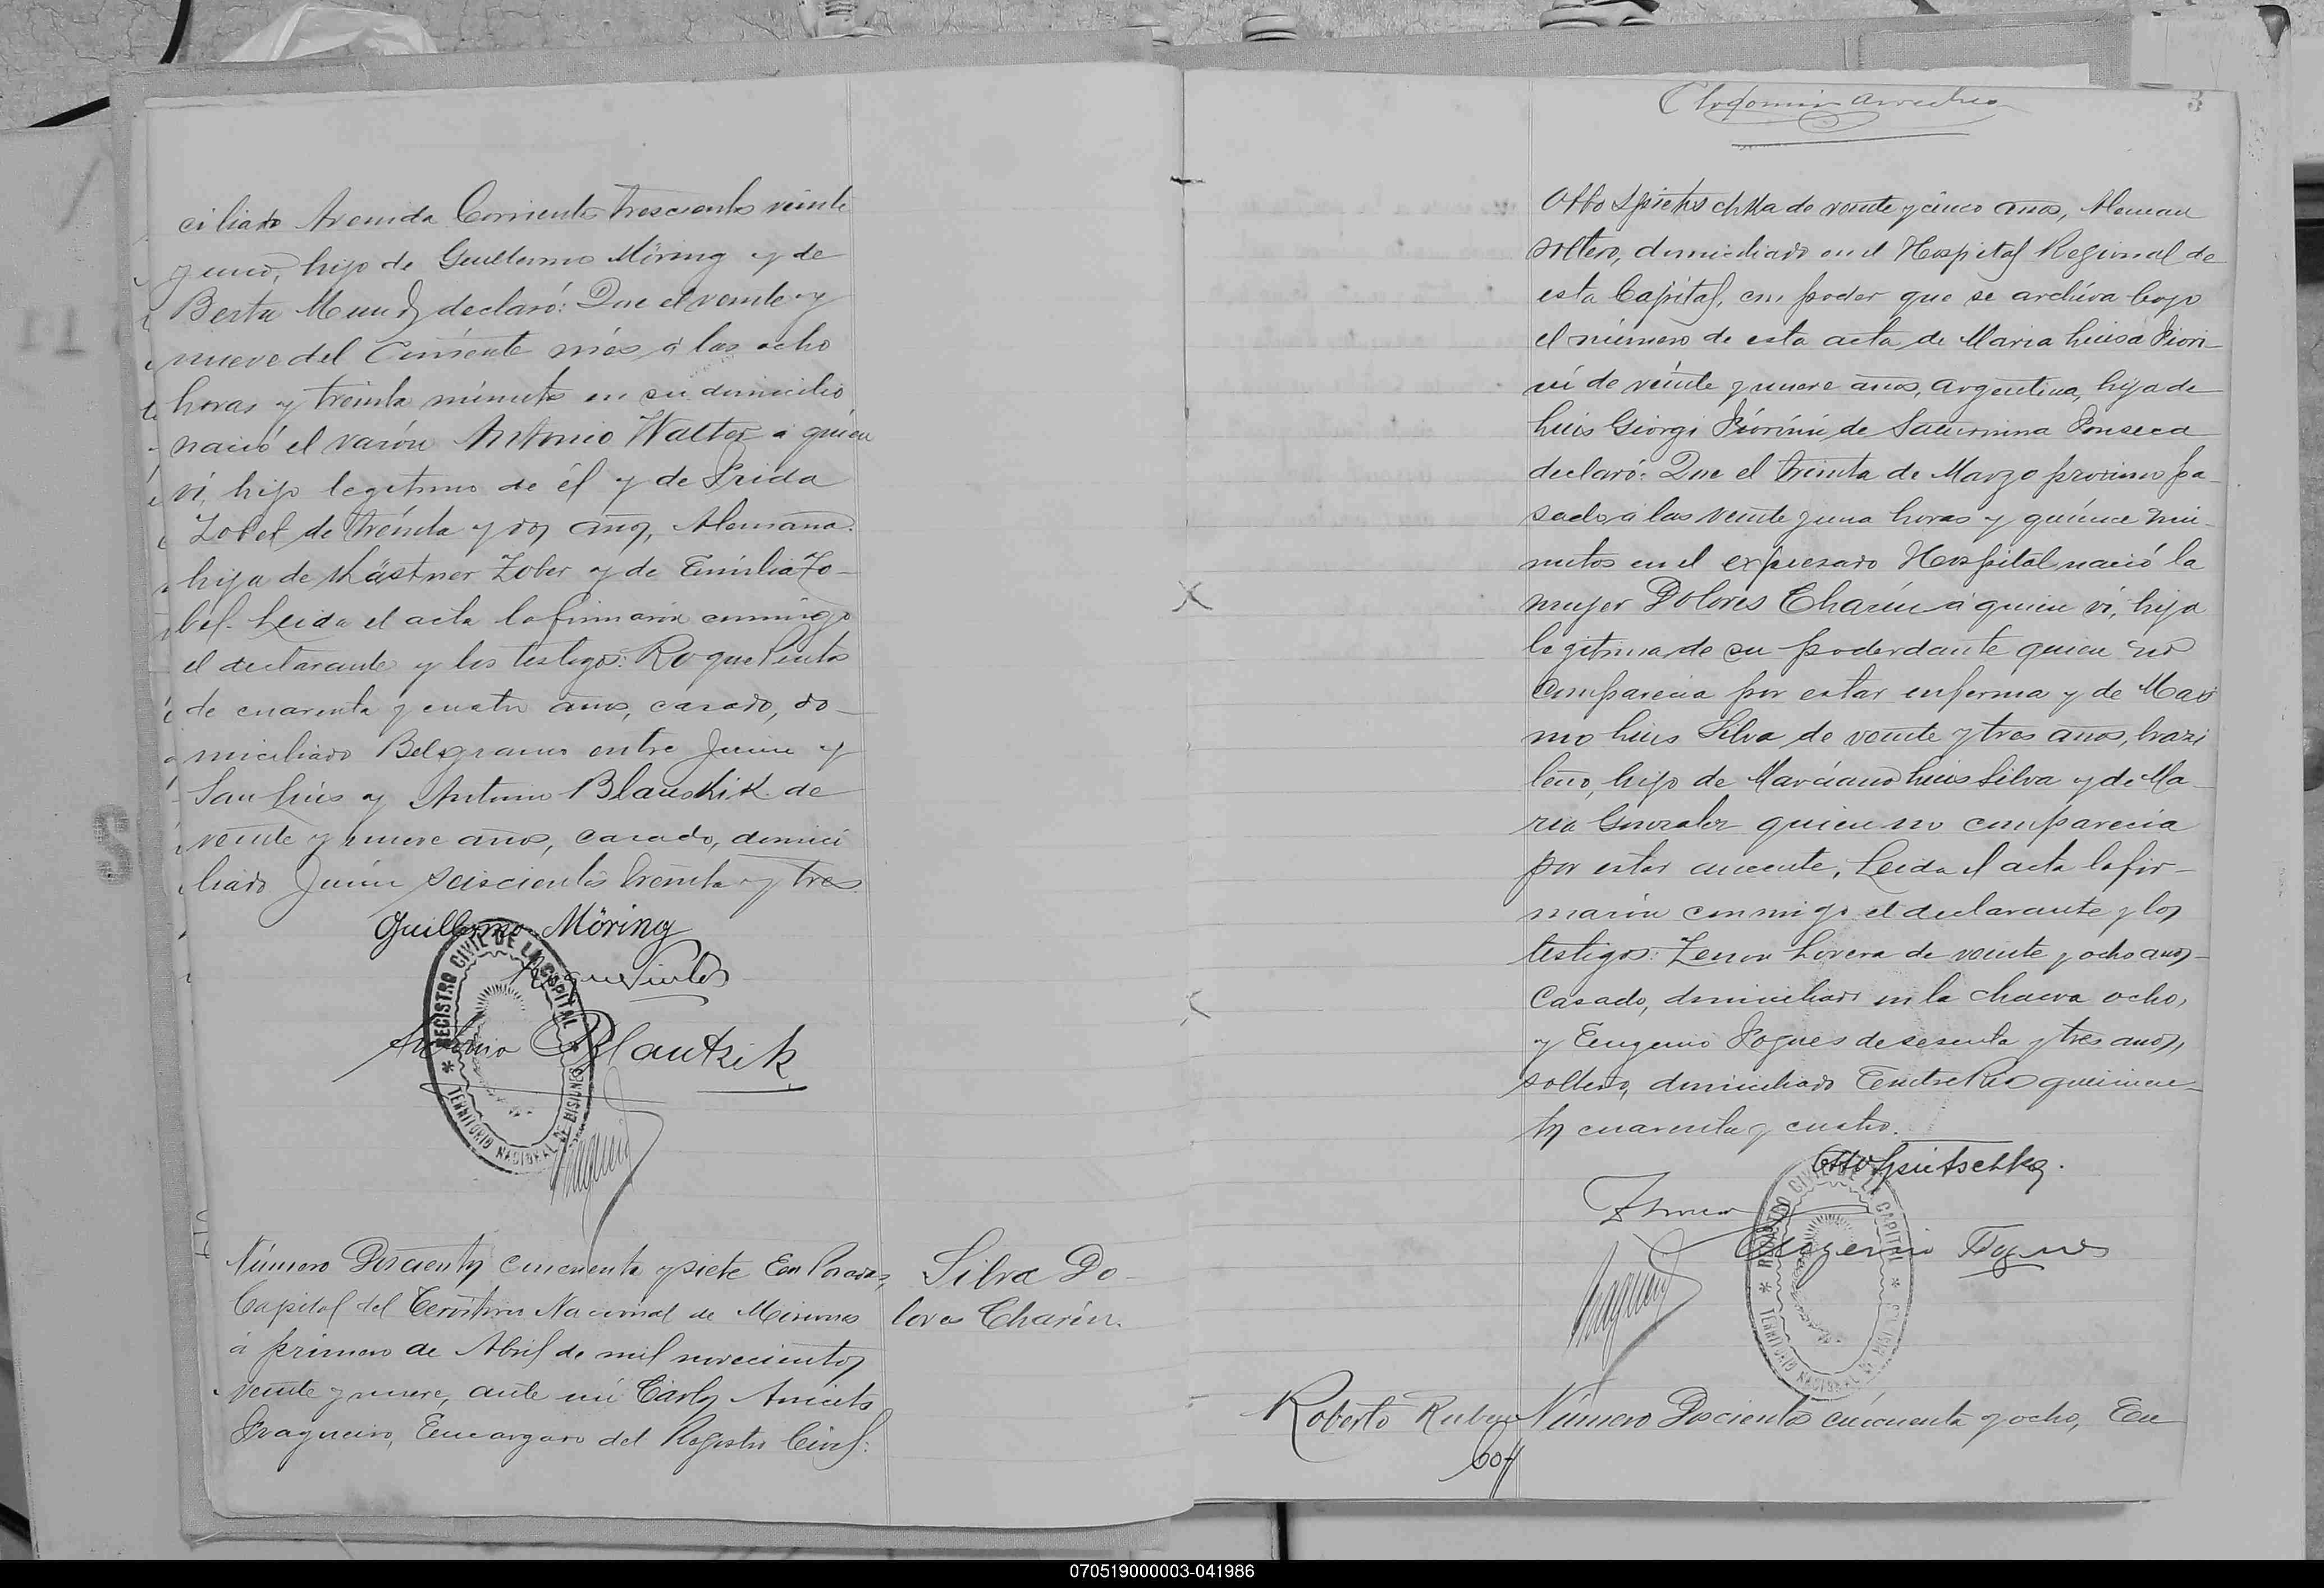 ciliado Avenida Corrientes trescientos veinte
y uno, hijo de Guillermo Möring y de
Berta Mund, declaró: Que el veinte y
nueve del Corriente més á las ocho
horas y treinta minutos en su domicilio
nació el varón Antonio Walter á quien
ví, hijo legitimo de él y de Frida
Zobel de treinta y dos años, Alemana.
hija de Kästner Zober y de Emilia Zo-
bel. Leida el acta la firmaron conmigo
el declarante y los testigos: Roque
de cuarenta y cuatro años, casado, do-
miciliado Belgrano entre Junin y
San Luis y Antonio Blauskik de
veinte y nueve años, casado, domici
liado Junin seiscientos treinta y tres
Guillermo Möring
Antonio Blautzik
REGISTRO CIVIL DE LA CAPITAL
* TERRITORIO NACIONAL DE MISIONES *
Número Doscientos cincuenta y siete En Posadas,
Capital del Territorio Nacional de Misiones
á primero de Abril de mil novecientos
veinte y nueve, ante mí Carlos Aniceto
Fragueiro, Encargado del Registro Civil:
Silva Do-
lores Charín.
3
Otto Spietschka de veinte y cinco años, Aleman
soltero, domiciliado en el Hospital Regional de
esta Capital, con poder que se archiva bajo
el número de esta acta de Maria Luisa Fiori-
ni de veinte y nueve años, argentina, hija de
Luis Giorgi Fiorini de Saturnina Fonseca
declaró: Que el treinta de Marzo proximo pa-
sado á las veinte y una horas y quince mi-
nutos en el expresado Hospital nació la
mujer Dolores Charín á quien ví, hija
legitima de su poderdante quien no
comparecia por estar enferma y de Maxi
mo Luis Silva de veinte y tres años, brazi
leño, hijo de Marciano Luis Silva y de Ma-
ria Gonzalez quien no comparecia
por estar aucente, Leida el acta la fir-
maron conmigo el declarante y los
testigos: Zenon Lovera de veinte y ocho años
Casado, domiciliado en la chacra ocho,
y Eugenio Fognes de sesenta y tres años,
soltero, domiciliado Entre Rios quinien-
tos cuarenta y cuatro.
Otto Spietschka.
Eugenio Fognes
REGISTRO CIVIL DE LA CAPITAL
* TERRITORIO NACIONAL DE MISIONES *
Roberto Ruben
Número Doscientos cincuenta y ocho, En
070519000003-041986